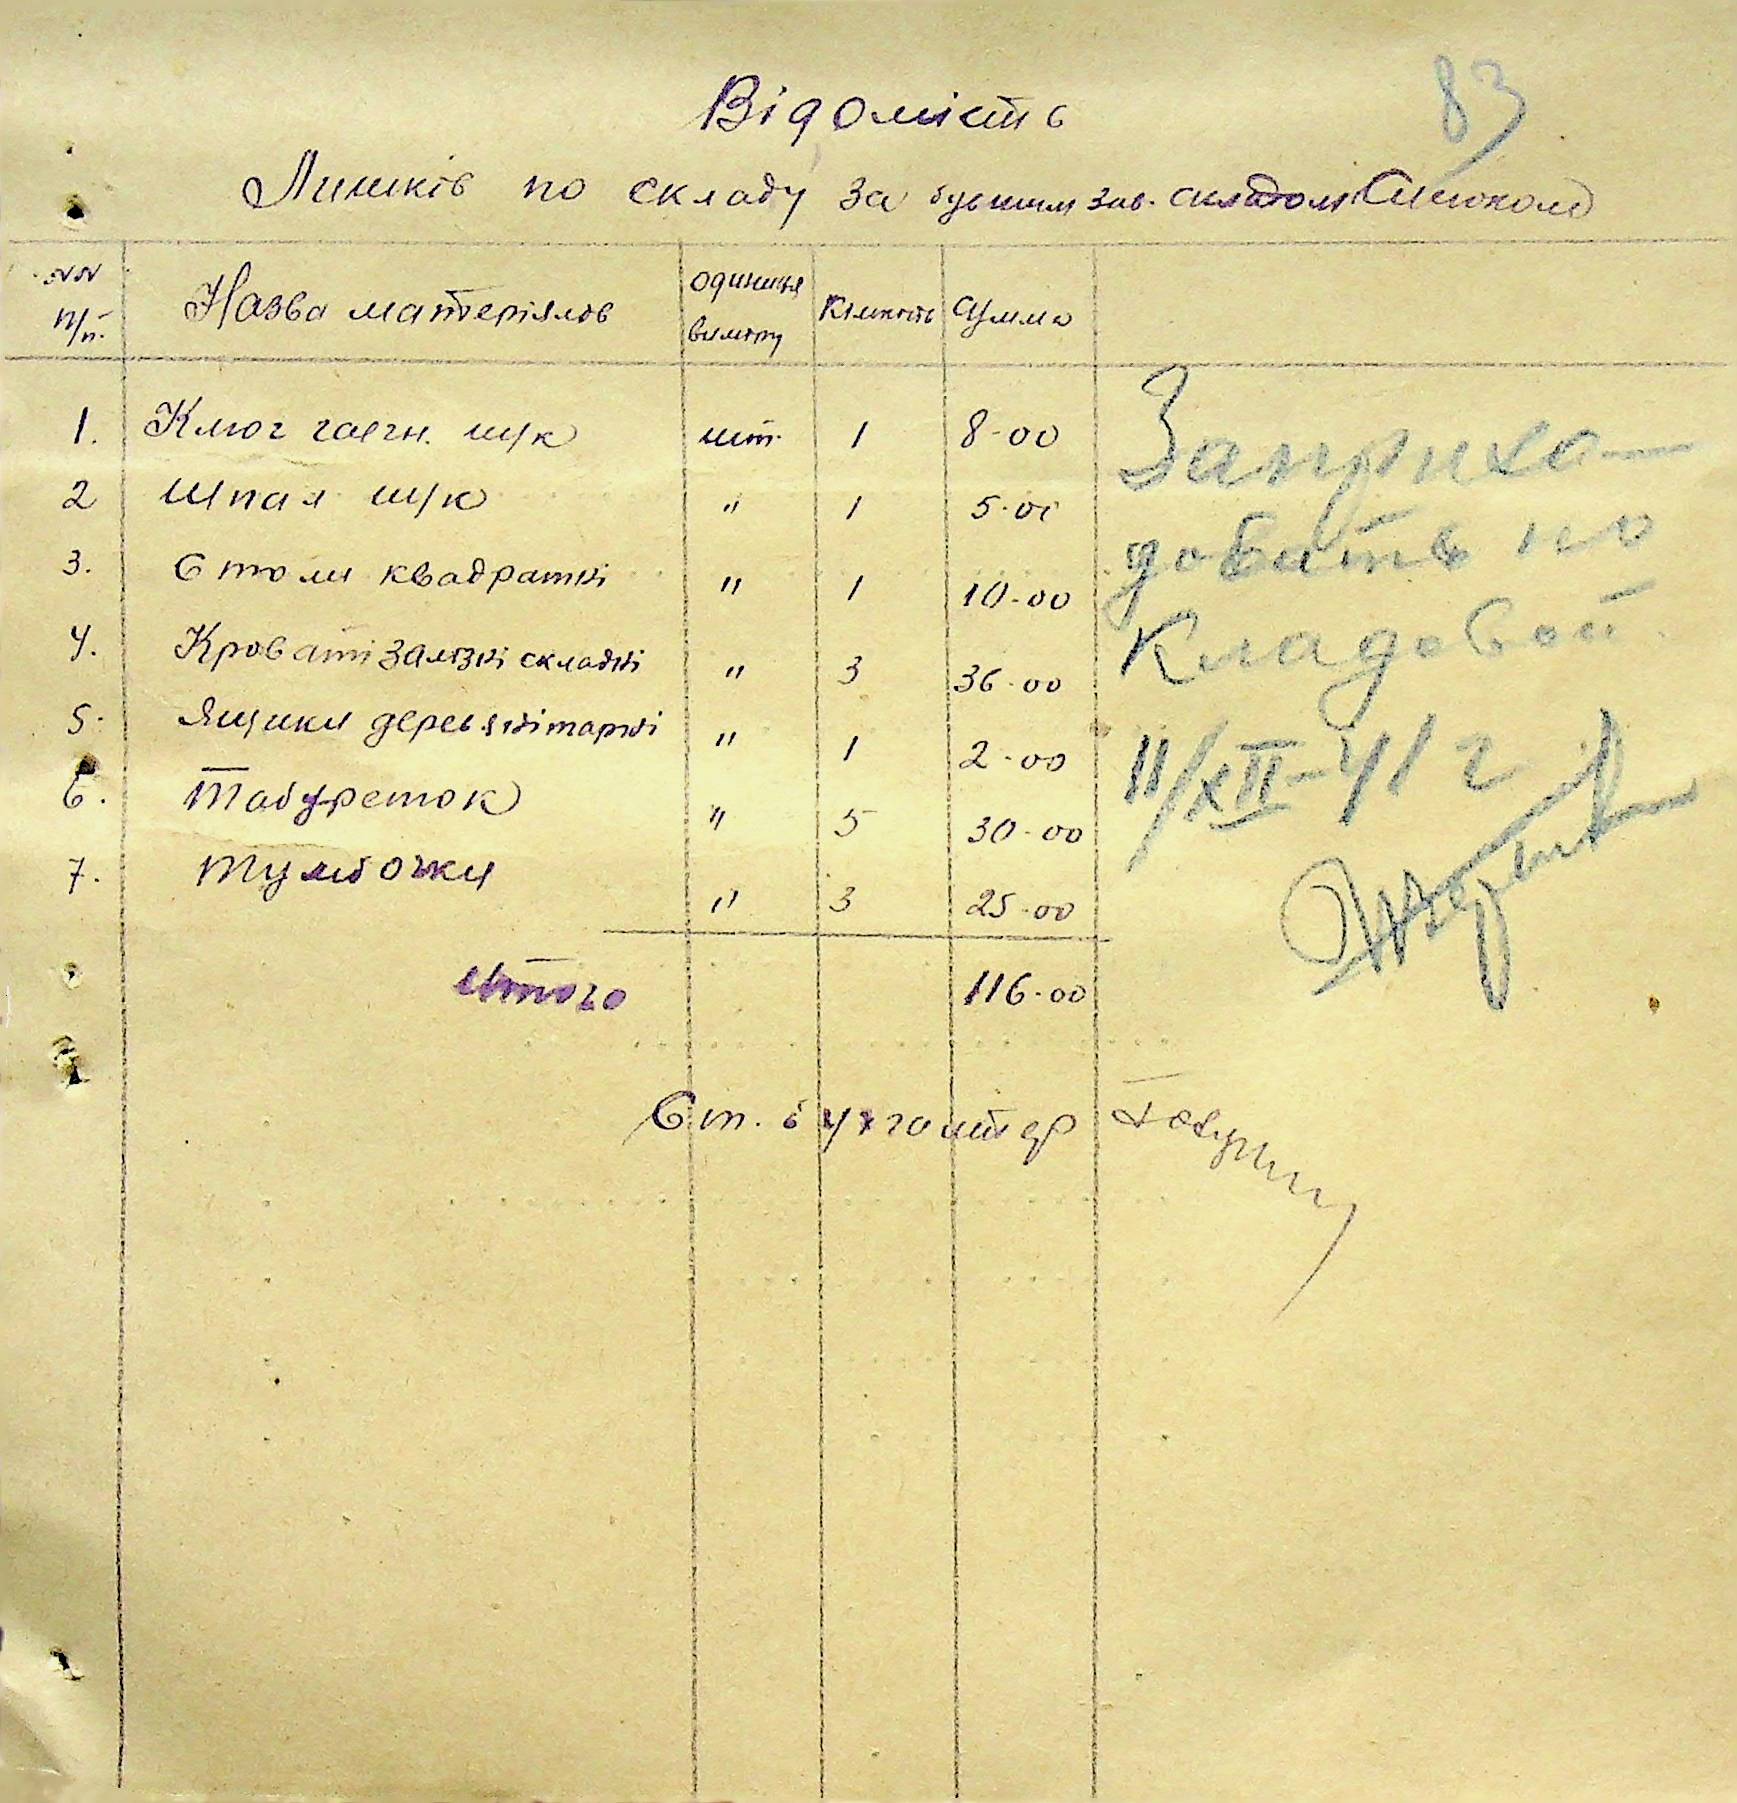 83
Відомість
Лишків по складу за бувшим зав. складом
NN п/п. Назва матеріялів одиниця виміру Кількість Сумма
1. Ключ гаечн. ш/к шт. 1 8-00
2 Шпал ш/к " 1 5-00
3. Столи квадратні " 1 10-00
4. Кроваті залізні складні " 3 36-00
5. Ящики деревяні тарні " 1 2-00
6. Табуреток " 5 30-00
7. Тумбочки " 3 25-00
Итого 116-00
Заприхо-
довать по
Кладовой
11/XII-41 г
Ст. бухгалтер